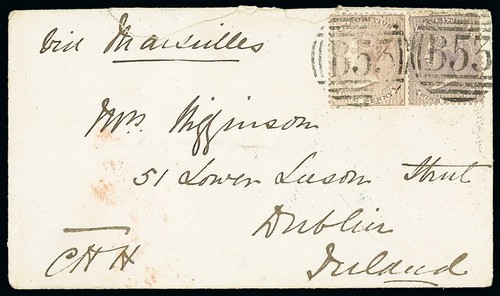 via Marseilles
B53 B53
PENNY
Mrs. Higginson
51 Lower Leeson Street
Dublin
Ireland
CHH